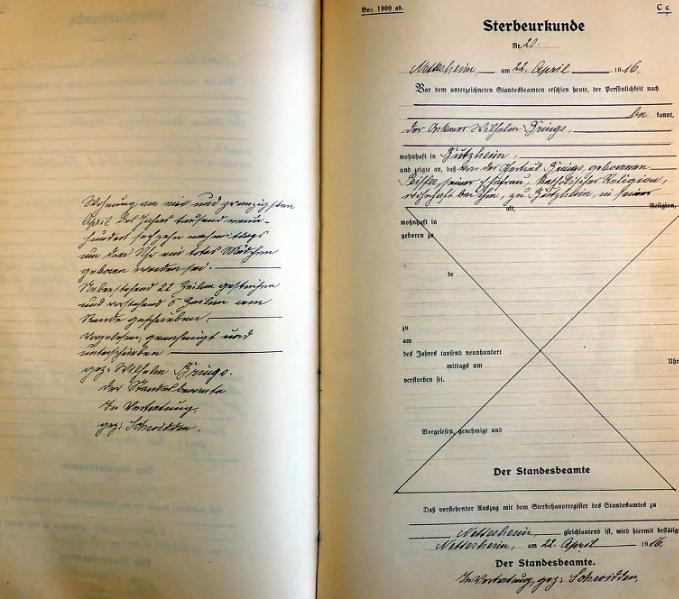 Wohnung am ein und zwanzigsten
April des Jahres tausend neun-
hundert sechzehn nachmittags
um drei Uhr ein totes Mädchen
geboren worden sei.
Nebenstehend 22 Zeilen gestrichen
und vorstehend 5 Zeilen am
Rande geschrieben.
Vorgelesen, genehmigt und
unterschrieben
gez. Wilhelm Brings.
Der Standesbeamte
In Vertretung
gez: Schmidden.
Vor. 1900 ab.
C c
Sterbeurkunde
Nr. 20.
Nettersheim, am 22. April 1916.
Vor dem unterzeichneten Standesbeamten erschien heute, der Persönlichkeit nach
be kannt,
der Wilhelm Brings,
wohnhaft in Zutzheim,
und zeigte an, daß von der Gertrud Brings, geborenen
seiner Ehefrau, katholischer Religion,
wohnhaft bei ihm, zu Zutzheim, in seiner
alt, Religion,
wohnhaft in
geboren zu
de
zu
am
des Jahres tausend neunhundert
mittags um Uhr
verstorben sei.
Vorgelesen, genehmigt und
Der Standesbeamte
Daß vorstehender Auszug mit dem Sterbehauptregister des Standesamtes zu
Nettersheim, gleichlautend ist, wird hiermit bestätig
Nettersheim, am 22. April 1916.
Der Standesbeamte.
In Vertretung, gez. Schmidden.